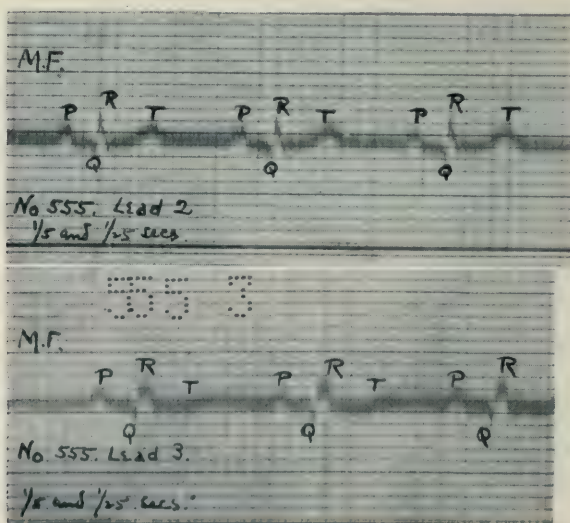 M.F.
P R T P R T P R T
Q Q Q
No 555. Lead 2
1/5 and 1/25 secs.
555 3
M.F.
P R T P R T P R
Q Q Q
No 555. Lead 3.
1/5 and 1/25 secs.